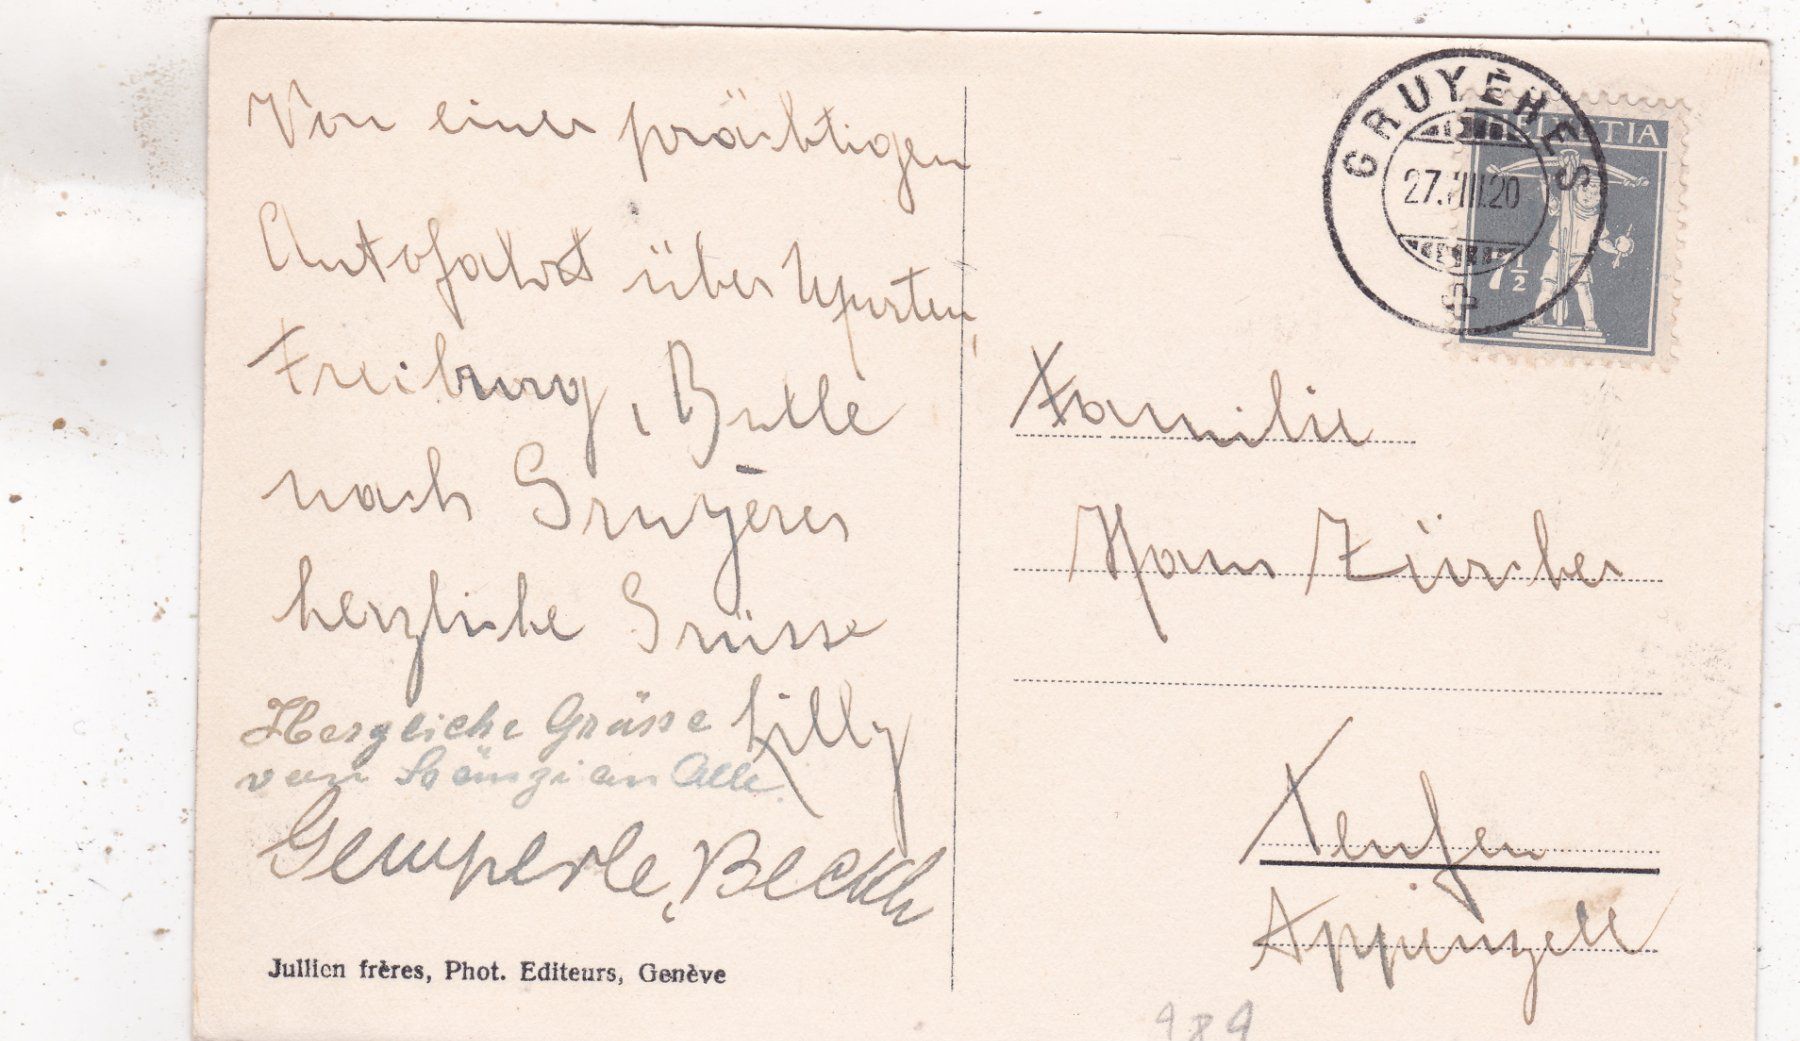 Von einer prächtigen
Autofahrt über Murten,
Freiburg, Bulle
nach Gruyères
herzliche Grüsse
Lilly
Herzliche Grüsse
von an Alle.
Gemperle,
Jullien frères, Phot. Editeurs, Genève
GRUYÈRES
27.VIII.20
HELVETIA
7 1/2
Familie
Hans Zürcher
Teufen
Appenzell
989